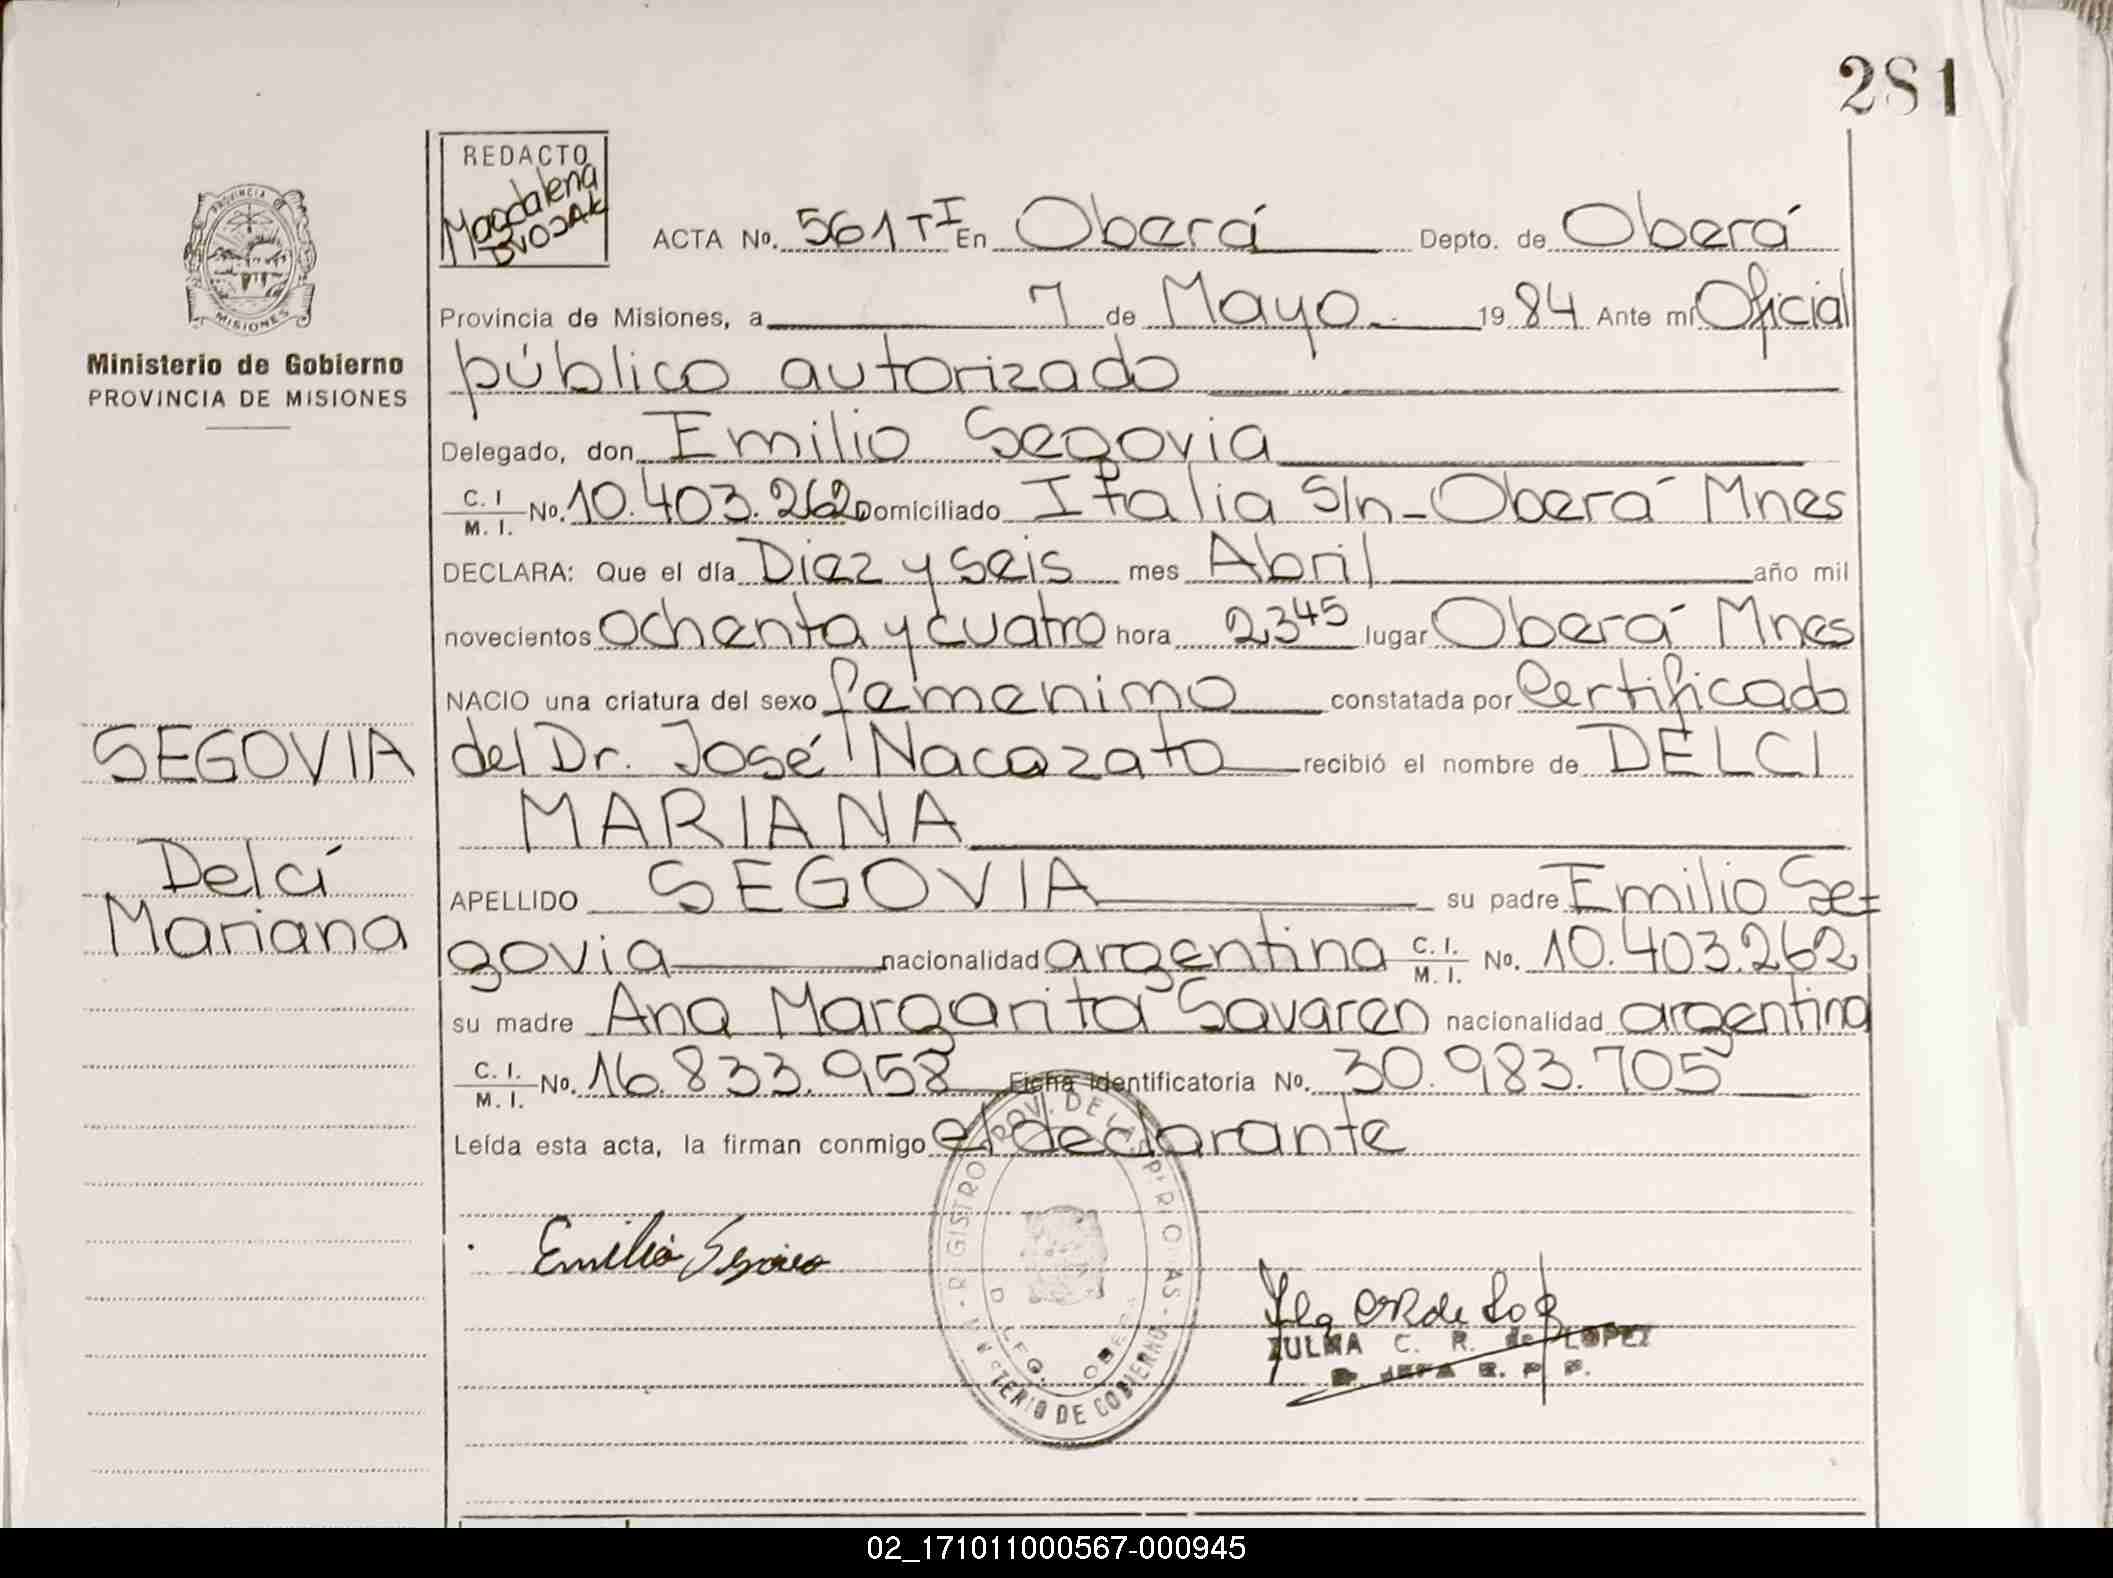 281
REDACTO
Magdalena
PROVINCIA
MISIONES
Ministerio de Gobierno
PROVINCIA DE MISIONES
ACTA No. 561 T I En Oberá Depto. de Oberá
Provincia de Misiones, a 7 de Mayo 1984 Ante mí Oficial
público autorizado
Delegado, don Emilio Segovia
C. I / M. I. No. 10.403.262 Domiciliado Italia S/n - Oberá Mnes
DECLARA: Que el día Diez y seis mes Abril año mil
novecientos ochenta y cuatro hora 23 45 lugar Oberá Mnes
NACIO una criatura del sexo femenino constatada por Certificado
del Dr. José Nacazato recibió el nombre de DELCI
MARIANA
APELLIDO SEGOVIA su padre Emilio Se=
govia nacionalidad argentina C. I. / M. I. No. 10.403.262
su madre Ana Margarita Savaren nacionalidad argentina
C. I. / M. I. No. 16.833.958 Ficha Identificatoria No. 30.983.705
Leída esta acta, la firman conmigo el declarante
SEGOVIA
Delcí
Mariana
Emilio Segovia
REGISTRO PROV. DE LAS PERSONAS
MINISTERIO DE GOBIERNO
ZULMA C. R. de LOPEZ
JEFA R. P. P.
02_171011000567-000945